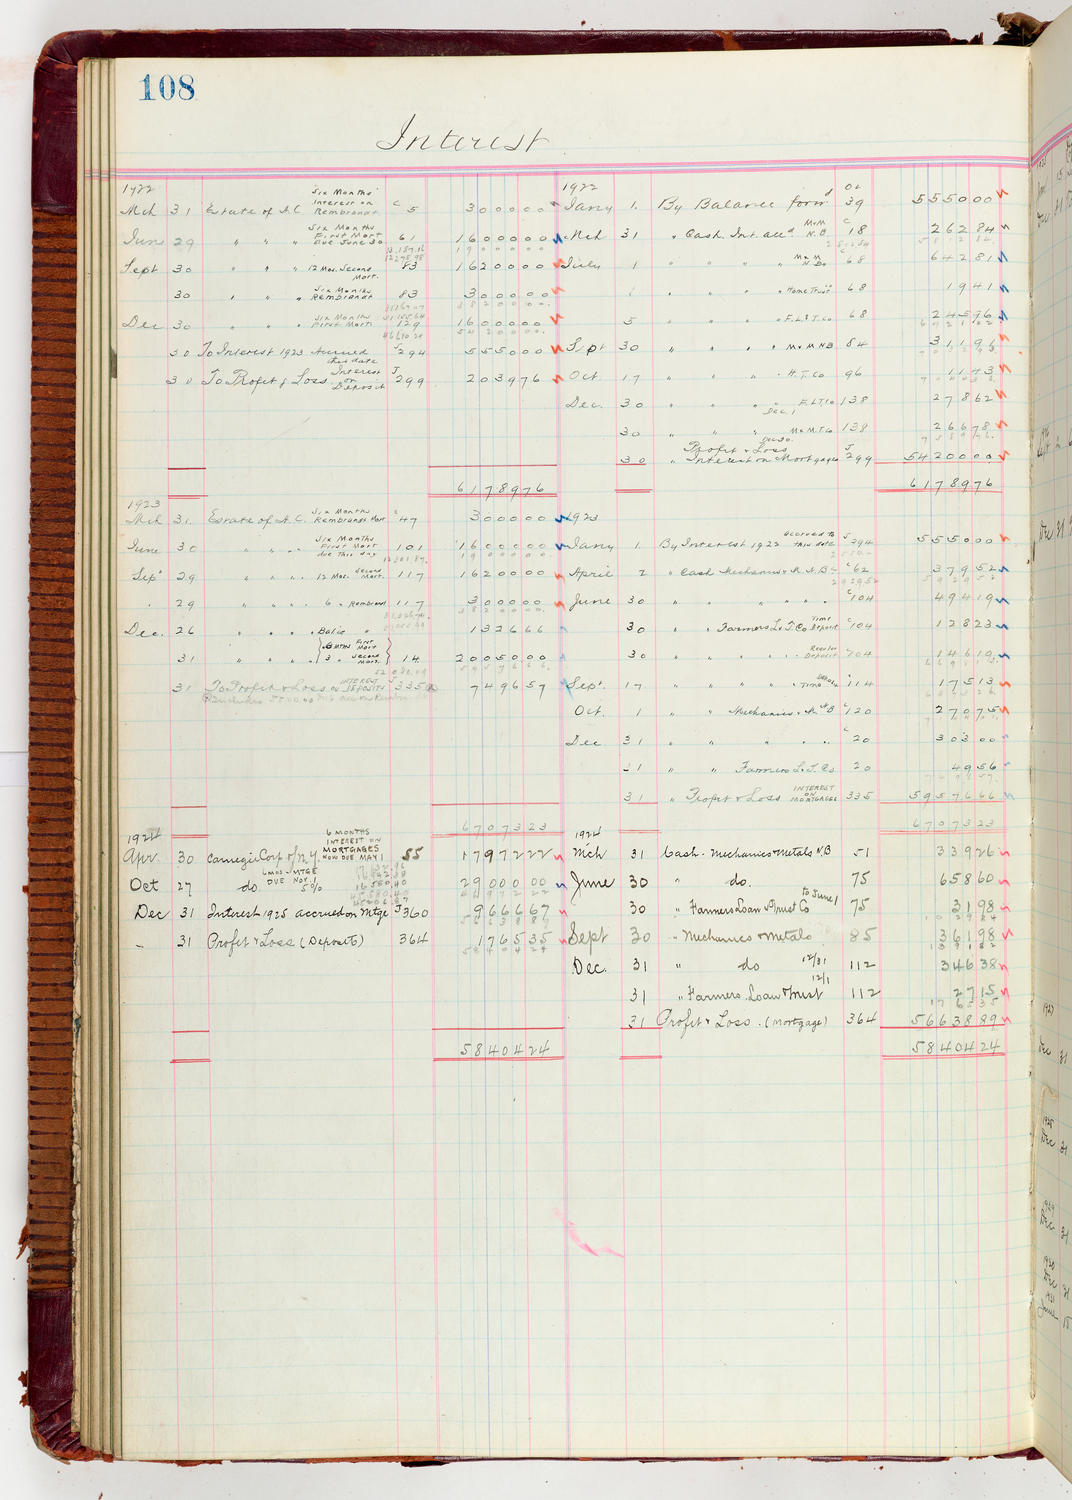 108
Interest
1922
Mch 31 Estate of A.C. Six Months Interest on Rembrandt c 5 300000
June 29 " " " Six Months First Mort Due June 30 61 1600000
Sept 30 " " " 12 Mos. Second Mort. 83 1620000
30 " " " Six Months Rembrandt 83 300000
Dec 30 " " " Six Months First Mort. 129 1600000
30 To Interest 1923 Accrued this date J 294 555000
30 To Profit & Loss Interest on Deposit J 299 203976
6178976
1922
Jany 1. By Balance form'd 39 555000
Mch 31 " Cash. Int. acc'd M&M N.B. c 18 26284
July 1 " " " " M&M N.B. 68 64281
" " " " Home Trust 68 1941
5 " " " " F.L.&T.Co 68 24596
Sept 30 " " " " M&M NB 84 31196
Oct 17 " " " " H.T.Co 96 1143
Dec. 30 " " " " F.L.T.Co Dec. 1 138 27862
30 " " " M&M.T.Co Dec 30. 138 26678
30 " Profit & Loss Interest on Mortgages J 299 5420000
6178976
1923
Mch 31. Estate of A.C. Six Months Rembrandt Mort c 47 300000
June 30 " " " Six Months First Mort due This day 101 1600000
Sep 29 " " " 12 Mos. Second Mort. 117 1620000
" 29 " " " 6 " Rembrandt 117 300000
Dec. 26 " " " " Bal. " 132666
31 " " " " 6 MTHS First Mort 3 " Second Mort. 14 2005000
31 To Profit & Loss INTEREST on DEPOSITS J 335 749657
6707323
1923
Jany 1. By Interest 1922 accrued to this date J 294 555000
April 2 " Cash Mechanics & M. N.B. c 62 37952
June 30 " " " " " c 104 49419
30 " " Farmers L & T. Co Time Deposit c 104 12823
30 " " " " " Regular Deposit 104 14619
Sept. 17 " " " " " Time 114 17513
Oct. 1 " " Mechanics & M. N B c 120 27075
Dec 31 " " " " " c 20 30300
31 " " Farmers L. T. Co 20 4956
31 " Profit & Loss INTEREST ON MORTGAGES 335 5957666
6707323
1924
Apr. 30 Carnegie Corp of N.Y. 6 MONTHS INTEREST ON MORTGAGES NOW DUE MAY 1 55 1797222
Oct 27 do. 6 MOS - MTGE DUE NOV. 1 50% 2900000
Dec 31 Interest 1925 accrued on Mtge J 360 966667
" 31 Profit & Loss (Deposits) 364 176535
5840424
1924
Mch 31 Cash. Mechanics & Metals N.B 51 33926
June 30 " do. 75 65860
30 " Farmers Loan & Trust Co to June 1 75 3198
Sept 30 " Mechanics & Metals 85 36198
Dec. 31 " do 12/31 112 34638
31 " Farmers Loan & Trust 12/1 112 2715
31 Profit & Loss. (Mortgage) 364 5663889
5840424